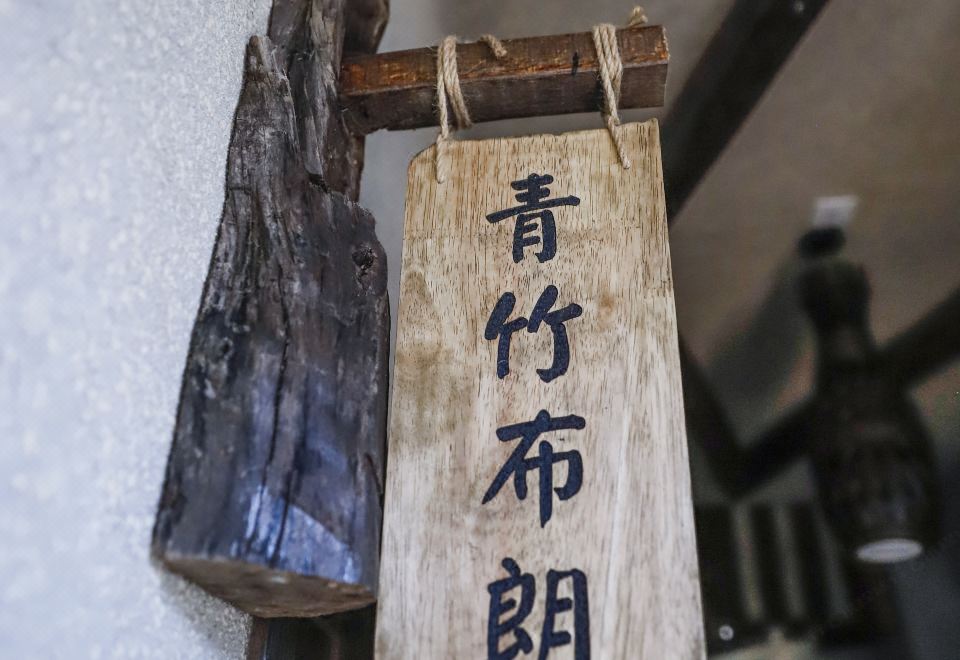 青竹布朗